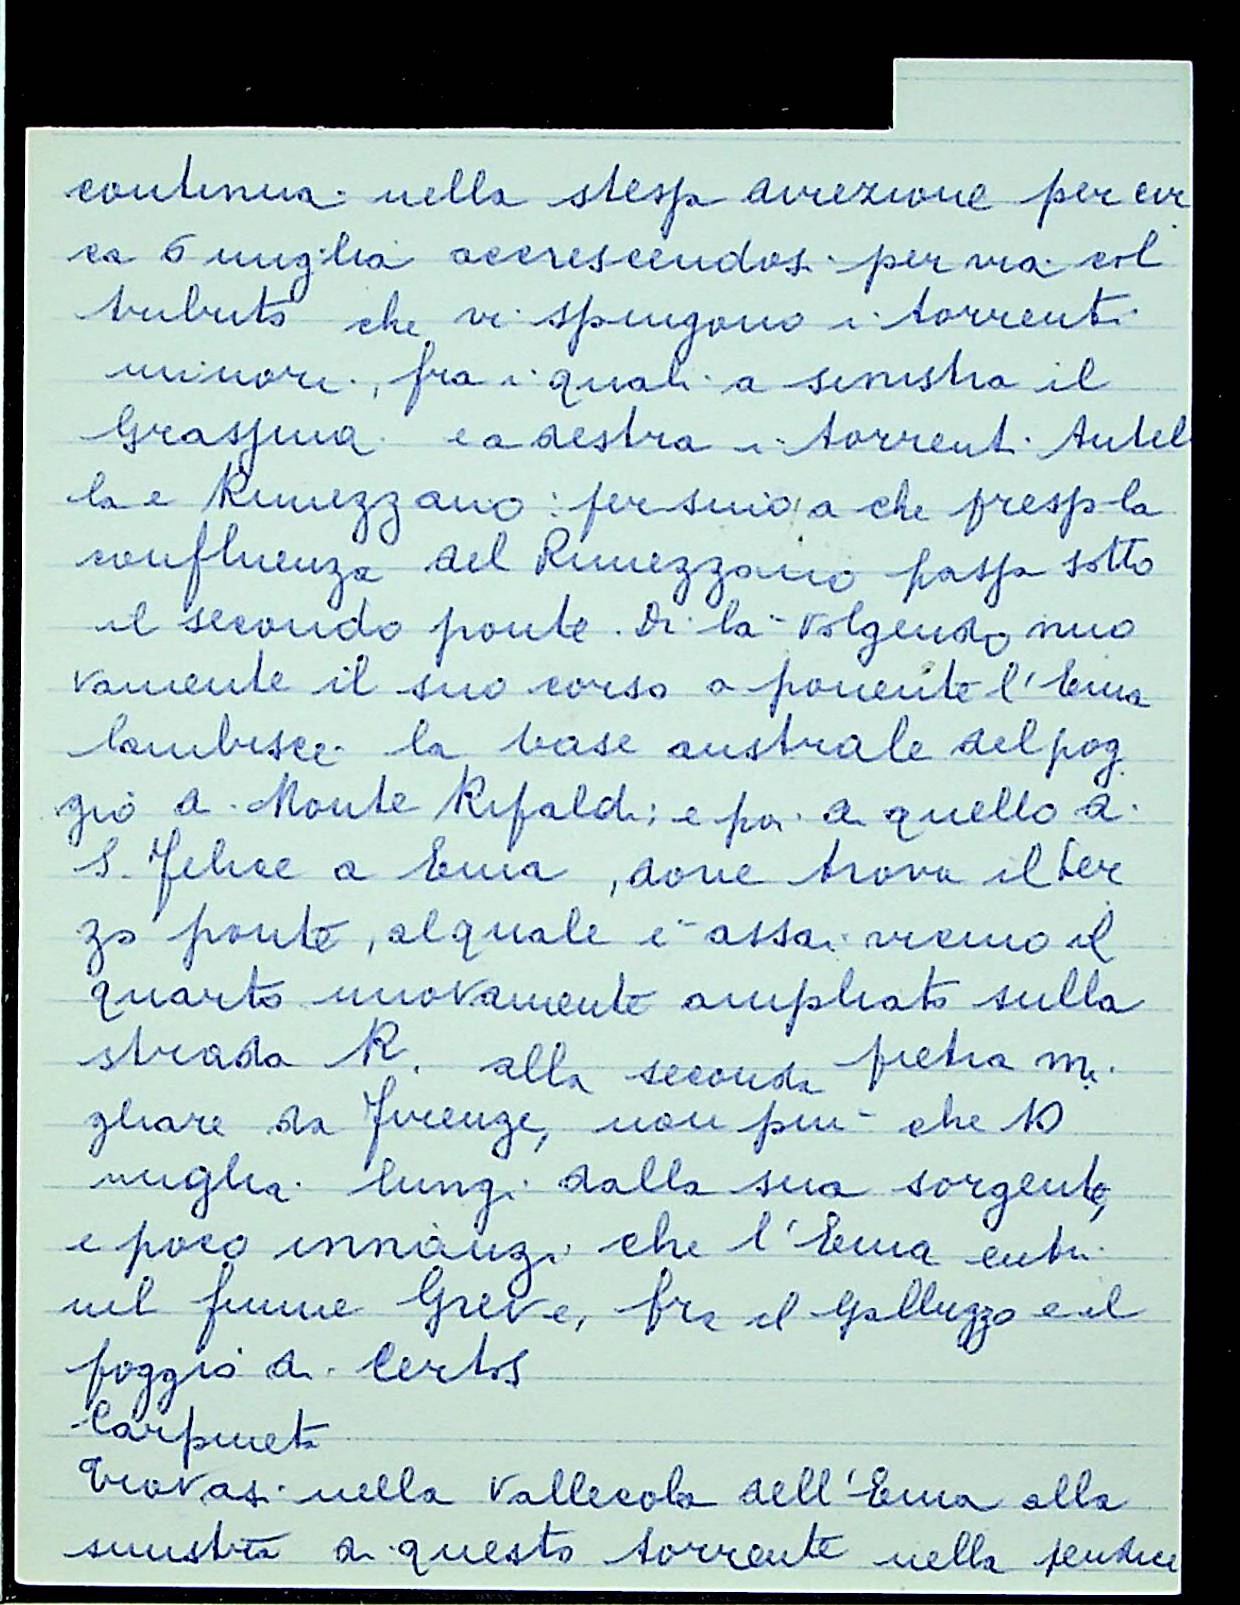 continua nella stessa direzione per cir
ca 6 miglia accrescendosi per via col
tributo che vi spingono i torrenti
minori, fra i quali a sinistra il
Grassina e a destra i torrenti Antel
la e Rimezzano: persino a che presso la
confluenza del Rimezzano passa sotto
il secondo ponte. Di là volgendo nuo
vamente il suo corso a ponente l'Ema
lambisce la base australe del pog
gio di Monte Ripaldi; e poi di quello di
S. Felice a Ema, dove trova il ter
zo ponte, al quale è assai vicino il
quarto nuovamente ampliato sulla
strada R. alla seconda pietra mi
gliare da Firenze, non più che 10
miglia lungi dalla sua sorgente,
e poco innanzi che l'Ema entri
nel fiume Greve, fra il Galluzzo e il
poggio di Certos
Carpineta
Trovasi nella vallecola dell'Ema alla
sinistra di questo torrente nella pendice